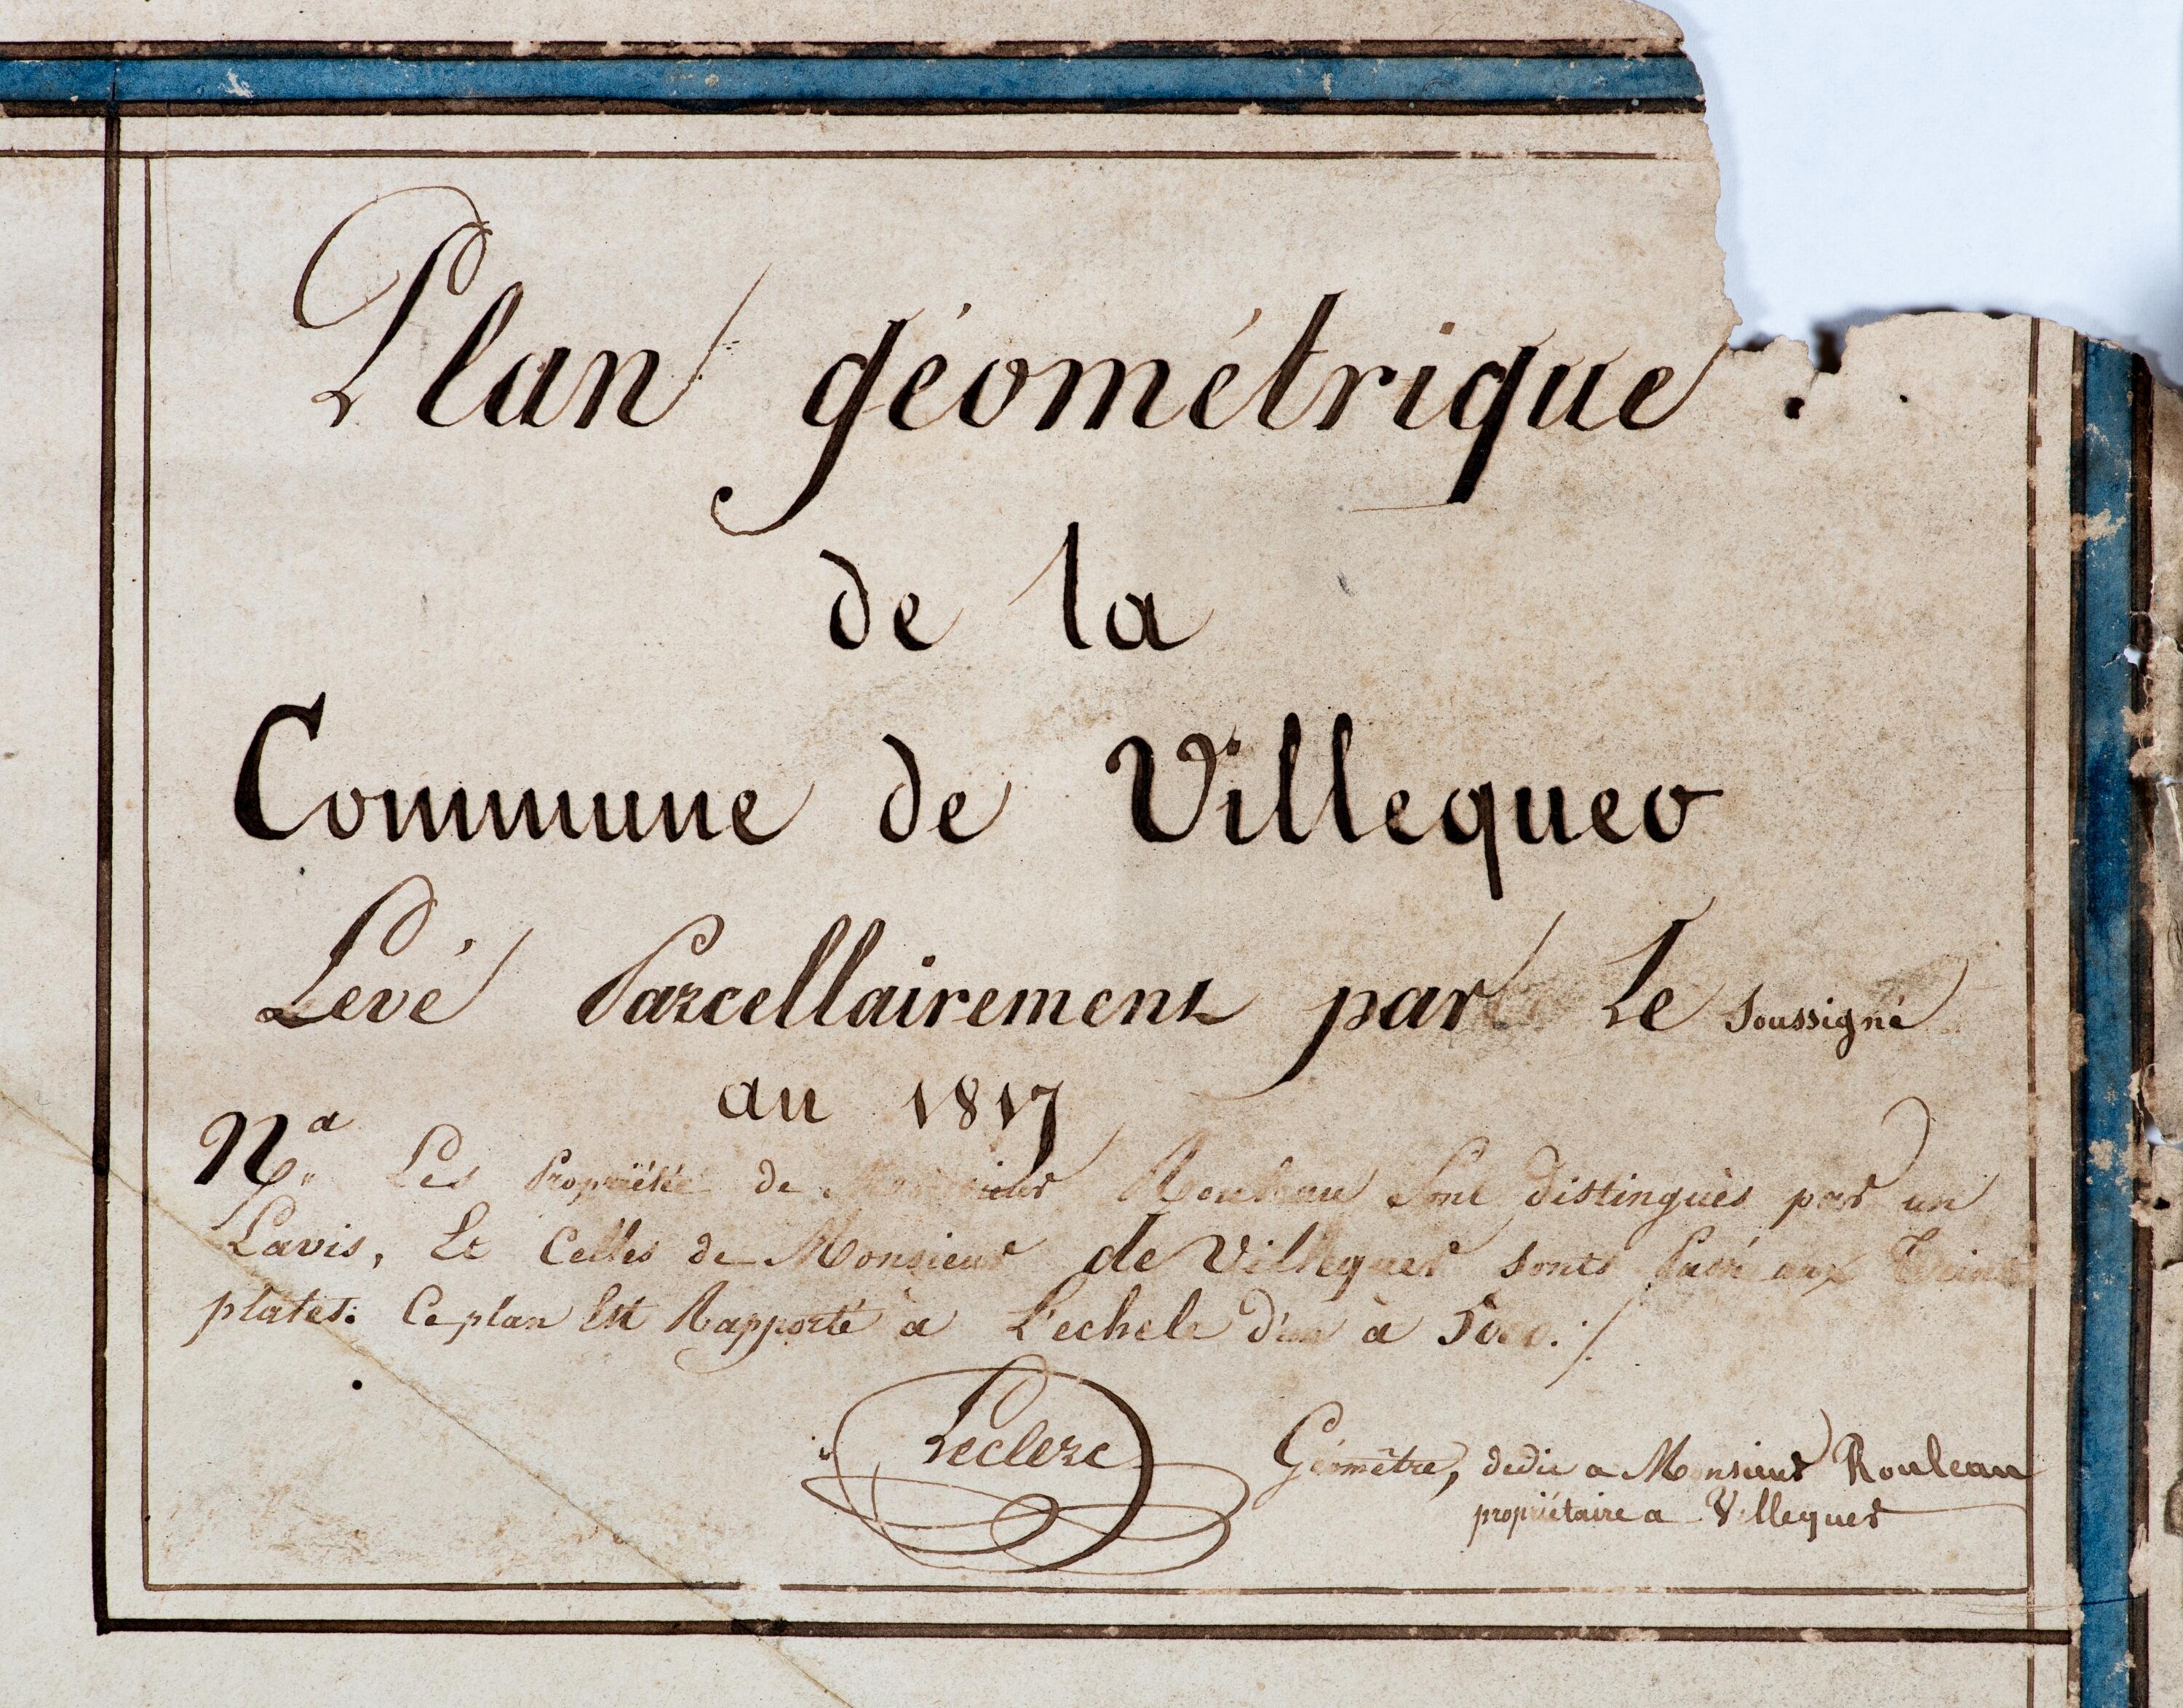 Plan géométrique
de la
Commune de Villequer
Levé Parcellairement par Le soussigné
an 1817
Na Les Propriétés de Monsieur Rouleau Sont distingués par un
Lavis, Et Celles de Monsieur de Villequer sonts aux Teint
plates: Ce plan Est Rapporté à L'echele d'un à 5000:/.
Leclerc Géomêtre, dedié a Monsieur Rouleau
propriétaire a Villequer